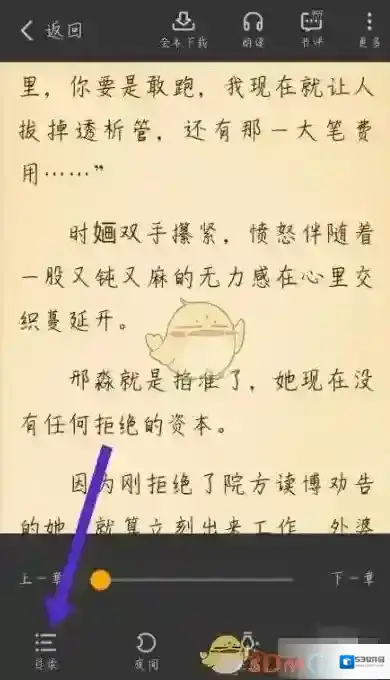 返回
全本下载
朗读
书评
更多
里，你要是敢跑，我现在就让人
拔掉透析管，还有那一大笔费
用……”
时婳双手攥紧，愤怒伴随着
一股又钝又麻的无力感在心里交
织蔓延开。
邢淼就是掐准了，她现在没
有任何拒绝的资本。
因为刚拒绝了院方读博劝告
的她，就算立刻出来工作，外婆
上一章
下一章
目录
夜间